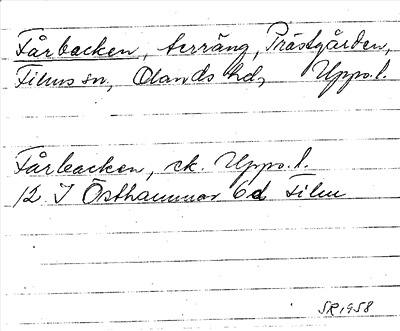 Fårbacken, terräng, Prästgården,
Films sn, Olands hd, Upps.l.
Fårbacken, ek. Upps.l.
12 I Östhammar 6d Film
SR 1958